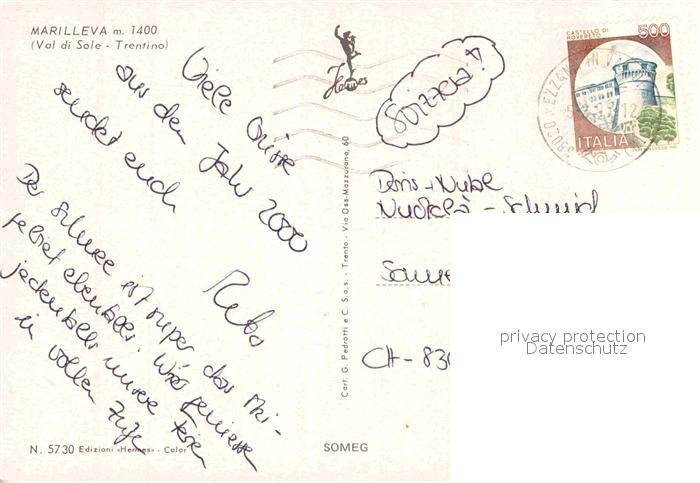 MARILLEVA m. 1400
(Val di Sole - Trentino)
Viele Grüsse
aus dem Jahr 2000
sendet euch
Reto
Der Schnee ist super das
selbst ebenfalls. Wir geniessen
jedenfalls unsere Ferien
in vollen Züge
N. 5730 Edizioni «Hermes» - Color
Hermes
Cart. G. Pedrotti e C. S.a.s. - Trento - Via Oss-Mazzurana, 60
SOMEG
SVIZZERA!
CASTELLO DI
ROVERETO
500
ITALIA
38020
12
Doris +
- Schmid
CH - 830
privacy protection
Datenschutz